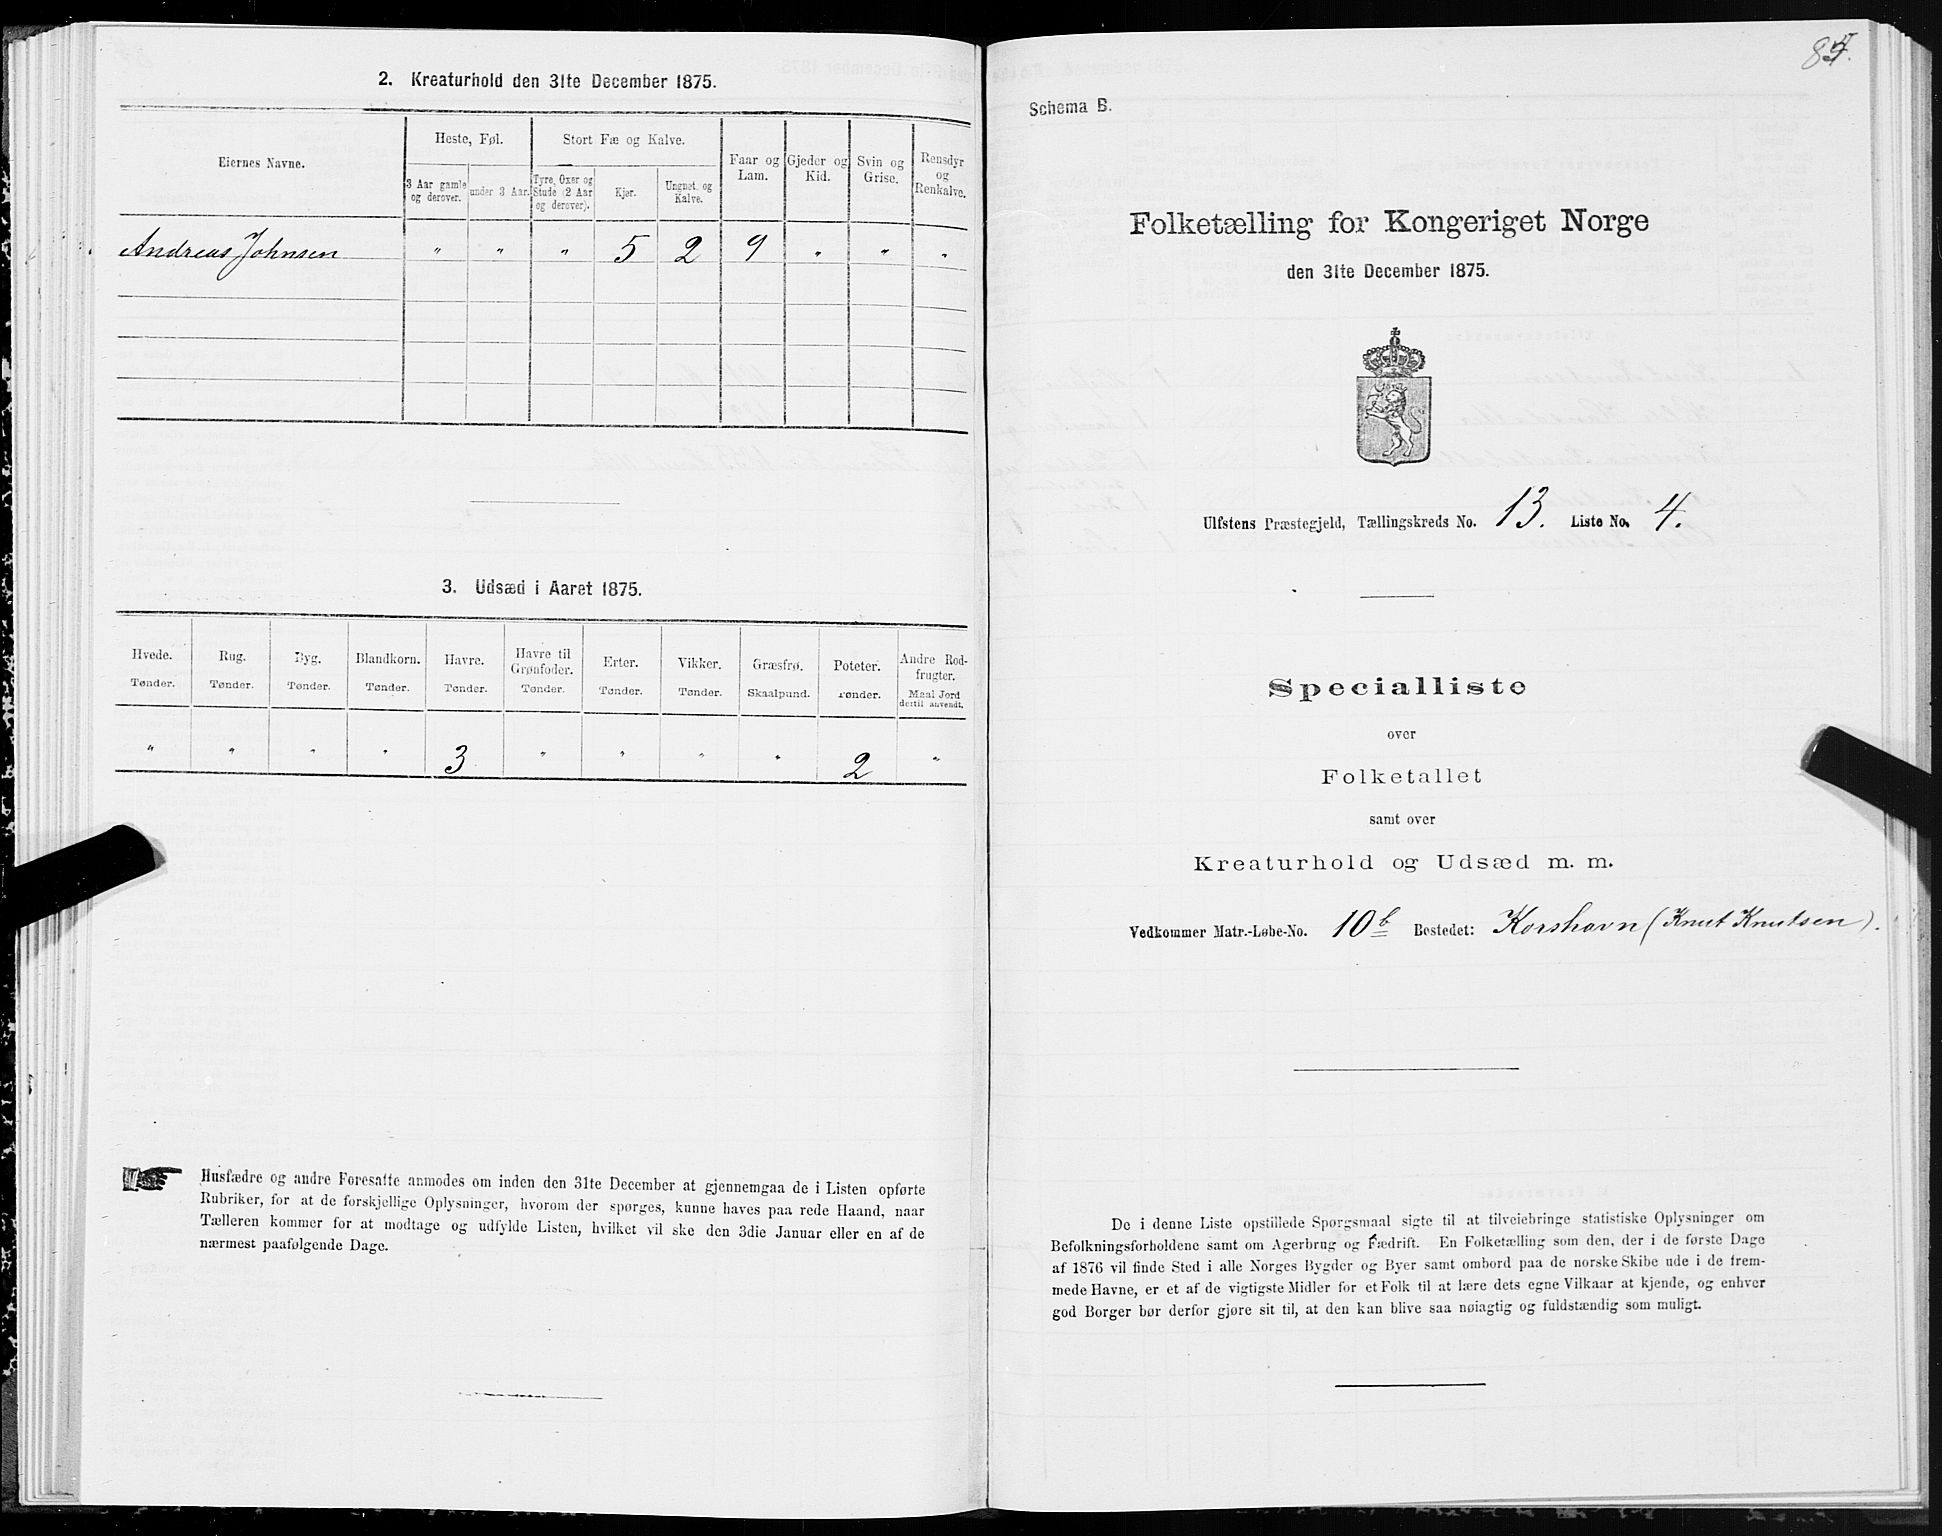 2. Kreaturhold den 31te December 1875.
Eiernes Navne.
Heste, Føl.
Stort Fæ og Kalve.
Faar og Lam.
Gjeder og Kid.
Svin og Grise.
Rensdyr og Renkalve.
3 Aar gamle og derover.
under 3 Aar.
Tyre, Oxer og Stude (2 Aar og derover).
Kjør.
Ungnøt og Kalve.
Andreas Johnsen " " " 5 2 9 " " "
3. Udsæd i Aaret 1875.
Hvede. Rug. Byg. Blandkorn. Havre. Havre til Grønfoder. Erter. Vikker. Græsfrø. Poteter. Andre Rodfrugter.
Tønder. Tønder. Tønder. Tønder. Tønder. Tønder. Tønder. Tønder. Skaalpund. Tønder. Maal Jord dertil anvendt.
" " " " 3 " " " " 2 "
Husfædre og andre Foresatte anmodes om inden den 31te December at gjennemgaa de i Listen opførte
Rubriker, for at de forskjellige Oplysninger, hvorom der spørges, kunne haves paa rede Haand, naar
Tælleren kommer for at modtage og udfylde Listen, hvilket vil ske den 3die Januar eller en af de
nærmest paafølgende Dage.
Schema B.
Folketælling for Kongeriget Norge
den 31te December 1875.
Ulfstens Præstegjeld, Tællingskreds No. 13. Liste No. 4.
Specialliste
over
Folketallet
samt over
Kreaturhold og Udsæd m. m.
Vedkommer Matr.-Løbe-No. 10b Bostedet: Korshavn (Knut Knutsen).
De i denne Liste opstillede Spørgsmaal sigte til at tilveiebringe statistiske Oplysninger om
Befolkningsforholdene samt om Agerbrug og Fædrift. En Folketælling som den, der i de første Dage
af 1876 vil finde Sted i alle Norges Bygder og Byer samt ombord paa de norske Skibe ude i de frem-
mede Havne, er et af de vigtigste Midler for et Folk til at lære dets egne Vilkaar at kjende, og enhver
god Borger bør derfor gjøre sit til, at den kan blive saa nøiagtig og fuldstændig som muligt.